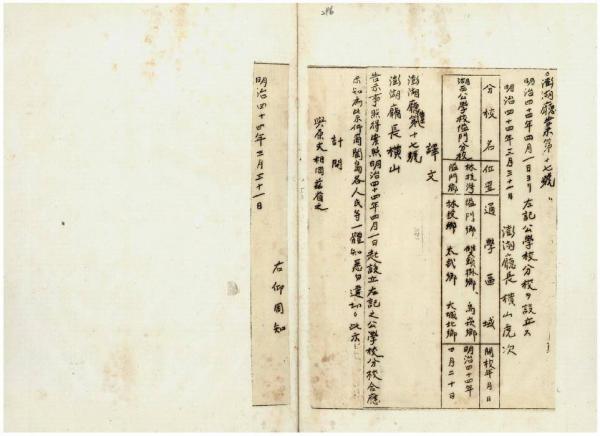 296
澎湖廳告示第十七號
明治四十四年四月一日ヨリ左記公學校分校ヲ設立ス
明治四十四年三月三十一日
澎湖廳長 橫山虎次
分校名 位置 通學區域 開校年月日
湖西公學校隘門分校 林投灣隘門鄉 隘門鄉、林投鄉、太武鄉、大城北鄉 明治四十四年四月二十日
譯文
澎湖廳第十七號
澎湖廳長橫山
告示事照得業照明治四十四年四月一日起設立左記之公學校分校合應
示知為此示仰闔島各人民等一體知悉毋違切切此示
計開
與原文相同茲省之
明治四十四年三月三十一日
右仰周知